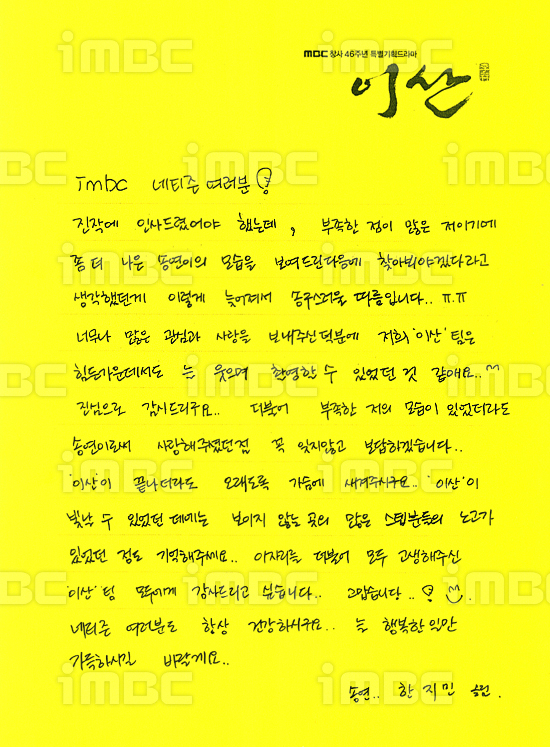 MBC 창사 46주년 특별기획드라마
이산
imbc 네티즌 여러분!
진작에 인사드렸어야 했는데, 부족한 점이 많은 저이기에
좀 더 나은 송연이의 모습을 보여드린다음에 찾아봬야겠다라고
생각했던게 이렇게 늦어져서 송구스러울 따름입니다.. ㅠ.ㅠ
너무나 많은 관심과 사랑을 보내주신 덕분에 저희 '이산' 팀은
힘든가운데서도 늘 웃으며 촬영할 수 있었던 것 같애요..^^
진심으로 감사드리구요.. 더불어 부족한 저의 모습이 있었더라도
송연이로써 사랑해주셨던점 꼭 잊지않고 보답하겠습니다..
'이산'이 끝나더라도 오래도록 가슴에 새겨주시구요.. '이산'이
빛날 수 있었던 데에는 보이지 않는 곳의 많은 스텝분들의 노고가
있었던 점도 기억해주세요.. 이자리를 더불어 모두 고생해주신
'이산' 팀 모두에게 감사드리고 싶습니다.. 고맙습니다..!
네티즌 여러분도 항상 건강하시구요.. 늘 행복한 일만
가득하시길 바랄게요..
송연.. 한지민 드림.